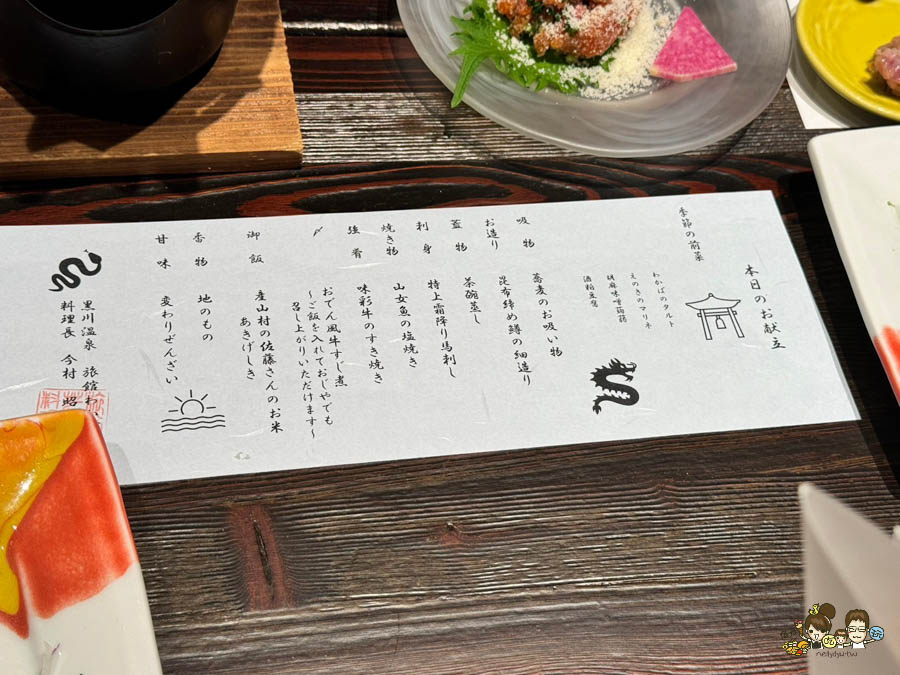 本日のお献立
季節の前菜
わかばのタルト
えのきのマリネ
酒粕豆腐
吸物
蕎麦のお吸い物
お造り
昆布〆め鱒の細造り
蓋物
茶碗蒸し
刺身
特上霜降り馬刺し
焼き物
山女魚の塩焼き
強肴
味彩牛のすき焼き
〆
おでん風牛すじ煮
～ご飯を入れておじやでも
召し上がりいただけます～
御飯
産山村の佐藤さんのお米
あきげしき
香物
地のもの
甘味
変わりぜんざい
黒川温泉 旅館わ
料理長 今村 昭